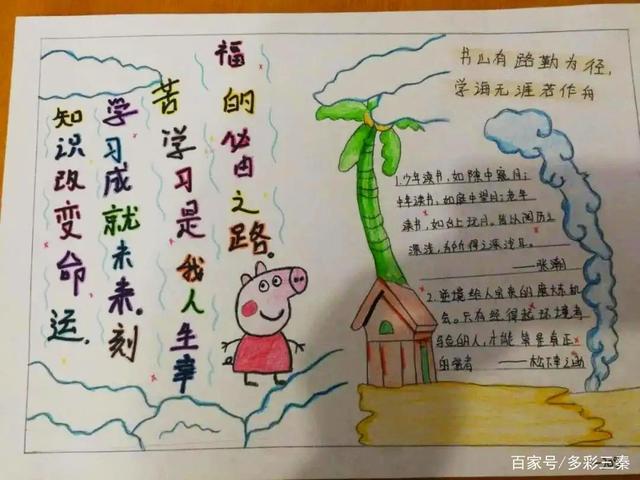 知识改变命运,
学习成就未来.刻
苦学习是我人生幸
福的必由之路.
书山有路勤为径,
学海无涯苦作舟
1.少年读书,如隙中窥月;
中年读书,如庭中望月;老年
读书,如台上玩月。皆以阅历之
深浅,为所得之深浅耳。
——张潮
2.逆境给人宝贵的磨炼机
会。只有经得起环境考
验的人,才能算是真正
的强者 ——松下幸之助
百家号/多彩三秦